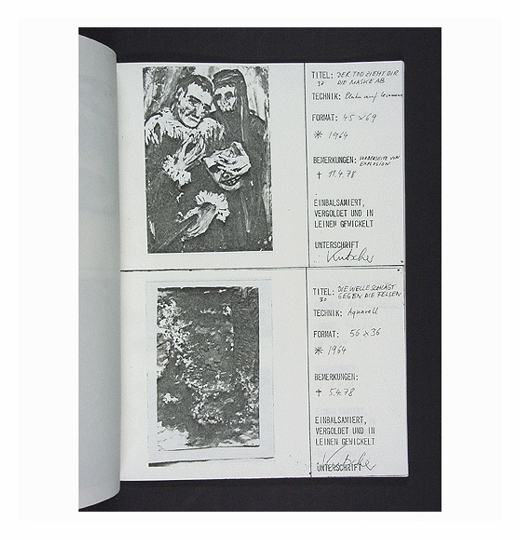 TITEL: DER TOD ZIEHT DIR
30 DIE MASKE AB
TECHNIK: auf
FORMAT: 45 x 69
* 1964
BEMERKUNGEN: VORDERSEITE VON
EXPLOSION
† 11.4.78
EINBALSAMIERT,
VERGOLDET UND IN
LEINEN GEWICKELT
UNTERSCHRIFT
Kutscher
TITEL: DIE WELLE SCHLÄGT
30 GEGEN DIE FELLEN
TECHNIK: Aquarell
FORMAT: 56 x 36
* 1964
BEMERKUNGEN:
† 5.4.78
EINBALSAMIERT,
VERGOLDET UND IN
LEINEN GEWICKELT
UNTERSCHRIFT
Kutscher